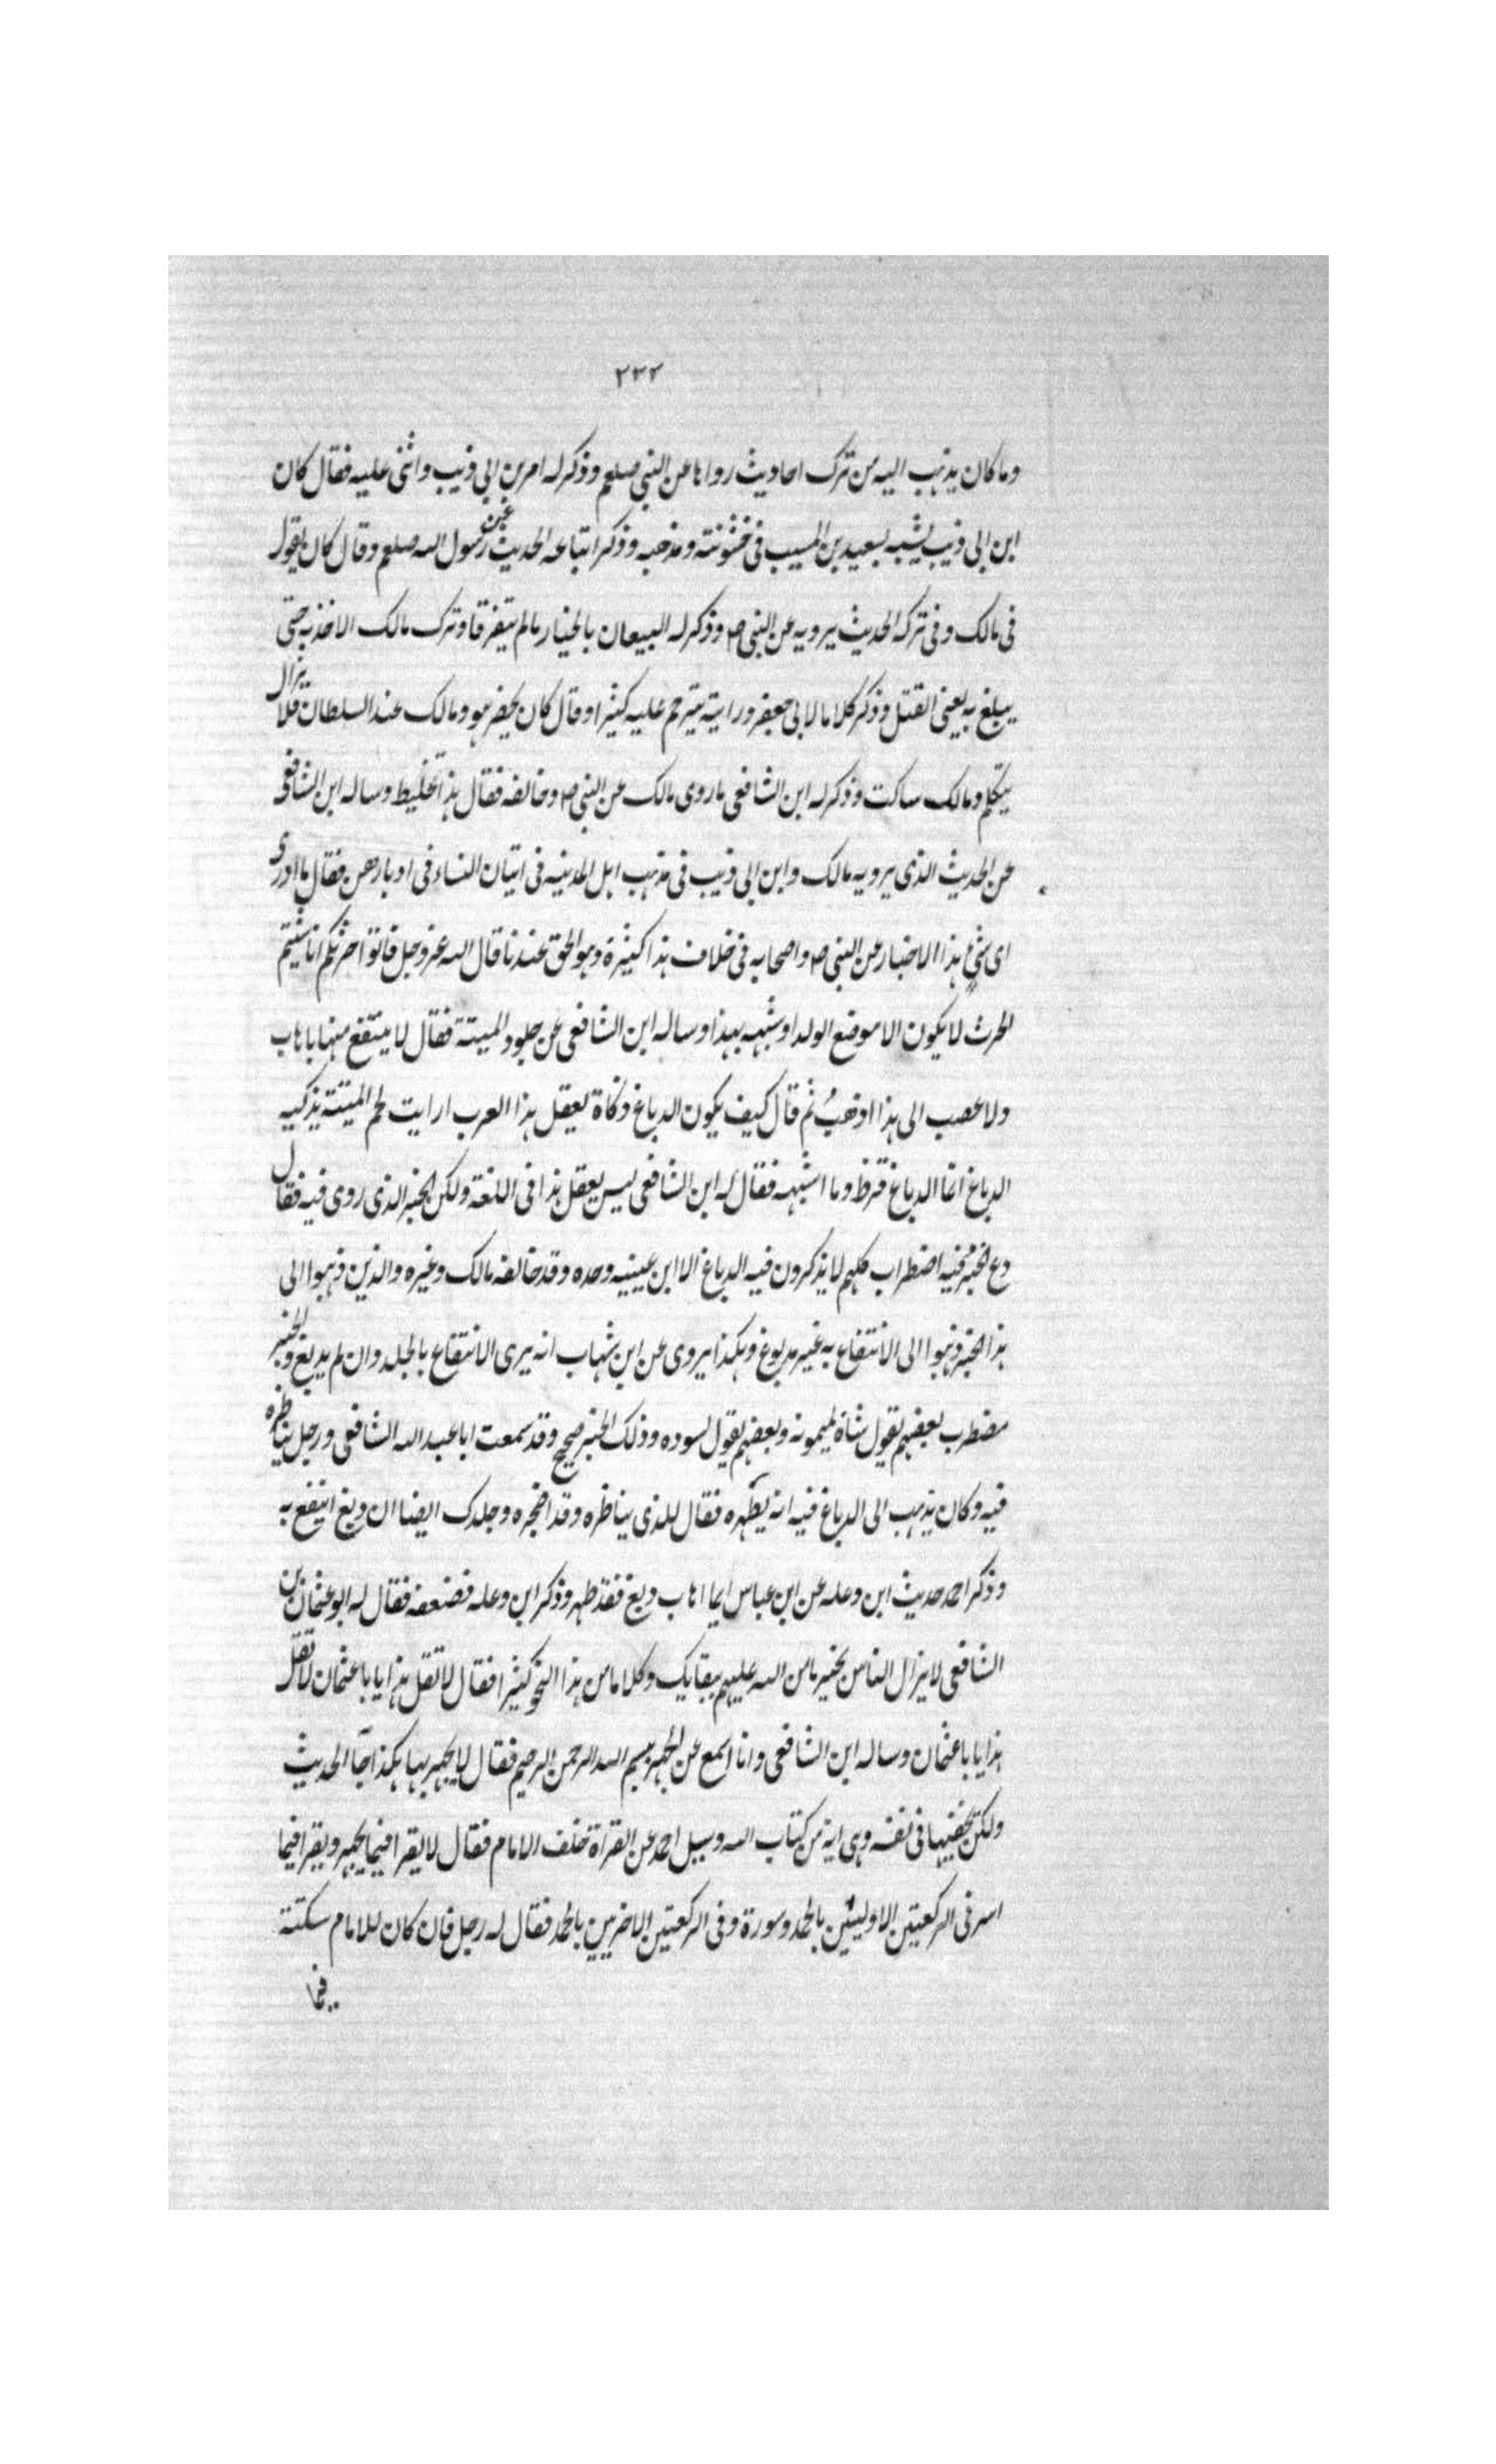 ٢٣٢
وما كان يذهب اليه من ترك احاديث رواها عن النبي صلعم وذكر له امر بن ابي ذيب واثنى عليه فقال كان
ابن ابي ذيب يشبه بسعيد بن المسيب في خشونته ومذهبه وذكر اتباعه الحديث عن رسول الله صلعم وقال كان يقول
في مالك وفي تركه الحديث يرويه عن النبي ص وذكر له البيعان بالخيار مالم يتفرقا وترك مالك الاخذ به حتى
يبلغ به يعني القتل وذكر كلاما لابي جعفر ورايته يترحم عليه كثيرا وقال كان يحضر هو ومالك عند السلطان فلا يزال
يتكلم ومالك ساكت وذكر له ابن الشافعي ما روى مالك عن النبي ص وخالفه فقال هذا تخليط وساله ابن الشافعي
عن الحديث الذي يرويه مالك وابن ابي ذيب في مذهب اهل المدينة في اتيان النساء في ادبارهن فقال ما ادرى
اى شي هذا الاخبار عن النبي ص واصحابه في خلاف هذا كثيرة وهو الحق عندنا قال الله عز وجل فاتوا حرثكم انا شيتم
الحرث لا يكون الا موضع الولد او شبهه بهذا وساله ابن الشافعي عن جلود الميتة فقال لا ينتفع منها باهاب
ولا عصب الى هذا اذهب ثم قال كيف يكون الدباغ ذكاة يعقل هذا العرب ارايت لحم الميتة يذكيه
الدباغ انما الدباغ قرظ وما اشبهه فقال له ابن الشافعي ليس يعقل هذا في اللغة ولكن الخبر الذي روى فيه فقال
دع الخبر فيه اضطراب كلهم لا يذكرون فيه الدباغ الا ابن عيينه وحده وقد خالفه مالك وغيره والذين ذهبوا الى
هذا الخبر ذهبوا الى الانتفاع به غير مدبوغ وهكذا يروى عن ابن شهاب انه يرى الانتفاع بالجلد وان لم يدبغ والخبر
مضطرب بعضهم يقول شاة لميمونه وبعضهم يقول لسوده وذلك الخبر صحيح وقد سمعت ابا عبد الله الشافعي ورجل يناظره
فيه وكان يذهب الى الدباغ فيه انه يطهره فقال للذى يناظره وقد اضجره وجلدك ايضا ان دبغ انتفع به
وذكر احمد حديث ابن وعله عن ابن عباس ايما اهاب دبغ فقد طهر وذكر ابن وعله فضعفه فقال له ابو عثمان بن
الشافعي لا يزال الناس بخير ما من الله عليهم ببقايك وكلاما من هذا النحو كثيرا فقال لا تقل هذا يابا عثمان لا تقل
هذا يابا عثمان وساله ابن الشافعي وانا اسمع عن الجهر ببسم الله الرحمن الرحيم فقال لا يجهر بها هكذا جآ الحديث
ولكن يخفيها في نفسه وهي اية من كتاب الله وسيل احمد عن القراة خلف الامام فقال لا يقرا فيما يجهر ويقرا فيما
اسر في الركعتين الاوليين بالحمد وسورة وفي الركعتين الاخريين بالحمد فقال له رجل فان كان للامام سكتة
فيما